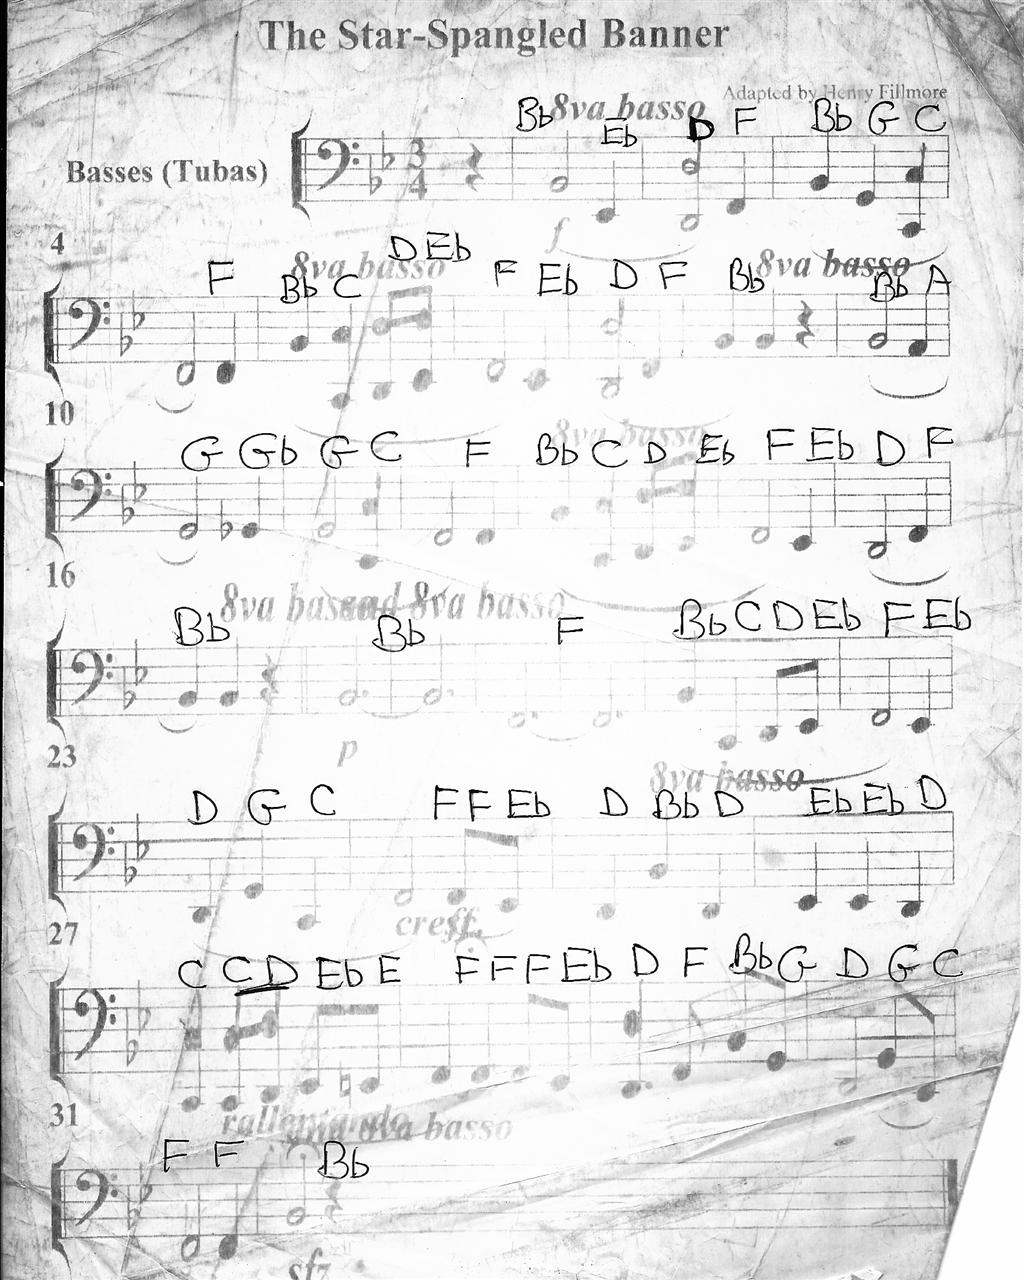 The Star-Spangled Banner
Adapted by Henry Fillmore
Bb 8va basso Eb D F Bb G C
Basses (Tubas)
3
4
f
4
F Bb 8va basso C D Eb F Eb D F Bb 8va basso Bb A
10
8va basso
G Gb G C F Bb C D Eb F Eb D F
16
8va basso 8va basso
Bb Bb F Bb C D Eb F Eb
p
23
8va basso
D G C F F Eb D Bb D Eb Eb D
27
C C D Eb E F F F Eb D F Bb G D G C
31
rallentando 8va basso
F F Bb
sfz